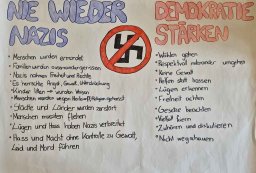 NIE WIEDER
NAZIS
• Menschen wurden ermordet
• Familien wurden auseinandergerissen
• Nazis nahmen Freiheit und Rechte
• Es herrschte Angst, Gewalt, Unterdrückung
• Kinder litten
wurden Waisen
• Menschen wurden wegen
• Städte und Länder wurden zerstört
• Menschen mussten fliehen
• Lügen und Hass haben Nazis verbreitet
• Hass und Macht ohne Kontrolle zu Gewalt,
Leid und Mord führen
DEMOKRATIE
STÄRKEN
• Wählen gehen
• Respektvoll miteinander umgehen
• Keine Gewalt
• Helfen statt hassen
• Lügen erkennen
• Freiheit achten
• Gesetze beachten
• Vielfalt feiern
• Zuhören und diskutieren
• Nicht wegschauen